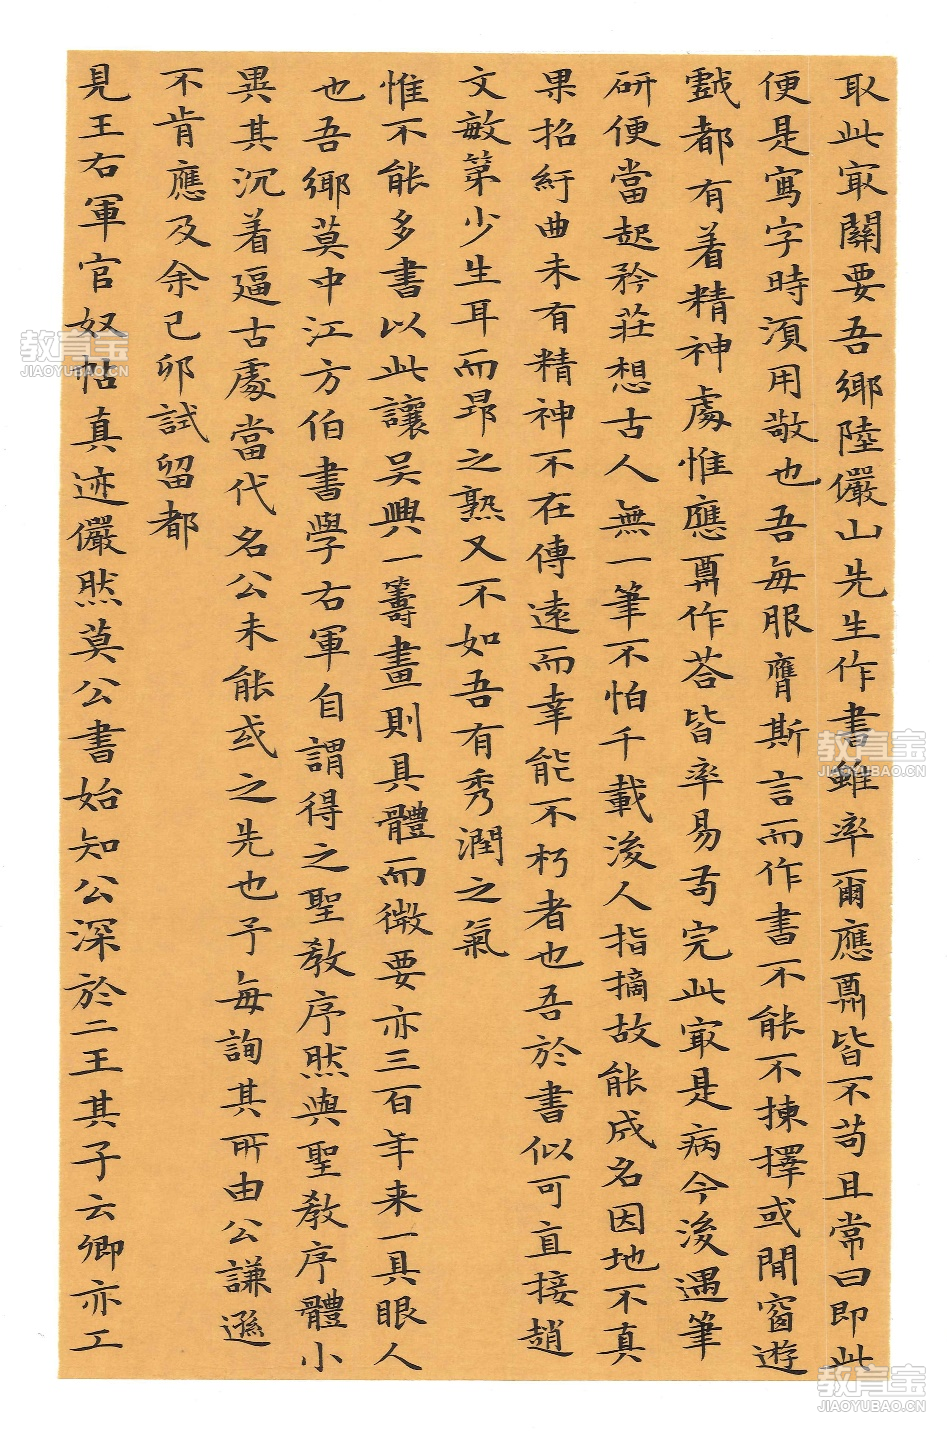 取此㝡關要吾鄉陸儼山先生作書雖率爾應酬皆不苟且常曰即此
便是寫字時須用敬也吾每服膺斯言而作書不能不揀擇或閒窗遊
戲都有着精神處惟應酬作荅皆率易苟完此㝡是病今後遇筆
研便當起矜莊想古人無一筆不怕千載後人指摘故能成名因地不真
果招紆曲未有精神不在傳遠而幸能不朽者也吾於書似可直接趙
文敏第少生耳而昂之熟又不如吾有秀潤之氣
惟不能多書以此讓吳興一籌畫則具體而微要亦三百年来一具眼人
也吾鄉莫中江方伯書學右軍自謂得之聖教序然與聖教序體小
異其沉着逼古處當代名公未能或之先也予每詢其所由公謙遜
不肯應及余己卯試留都
見王右軍官奴帖真迹儼然莫公書始知公深於二王其子云卿亦工
教育宝
JIAOYUBAO.CN
教育宝
JIAOYUBAO.CN
教育宝
JIAOYUBAO.CN